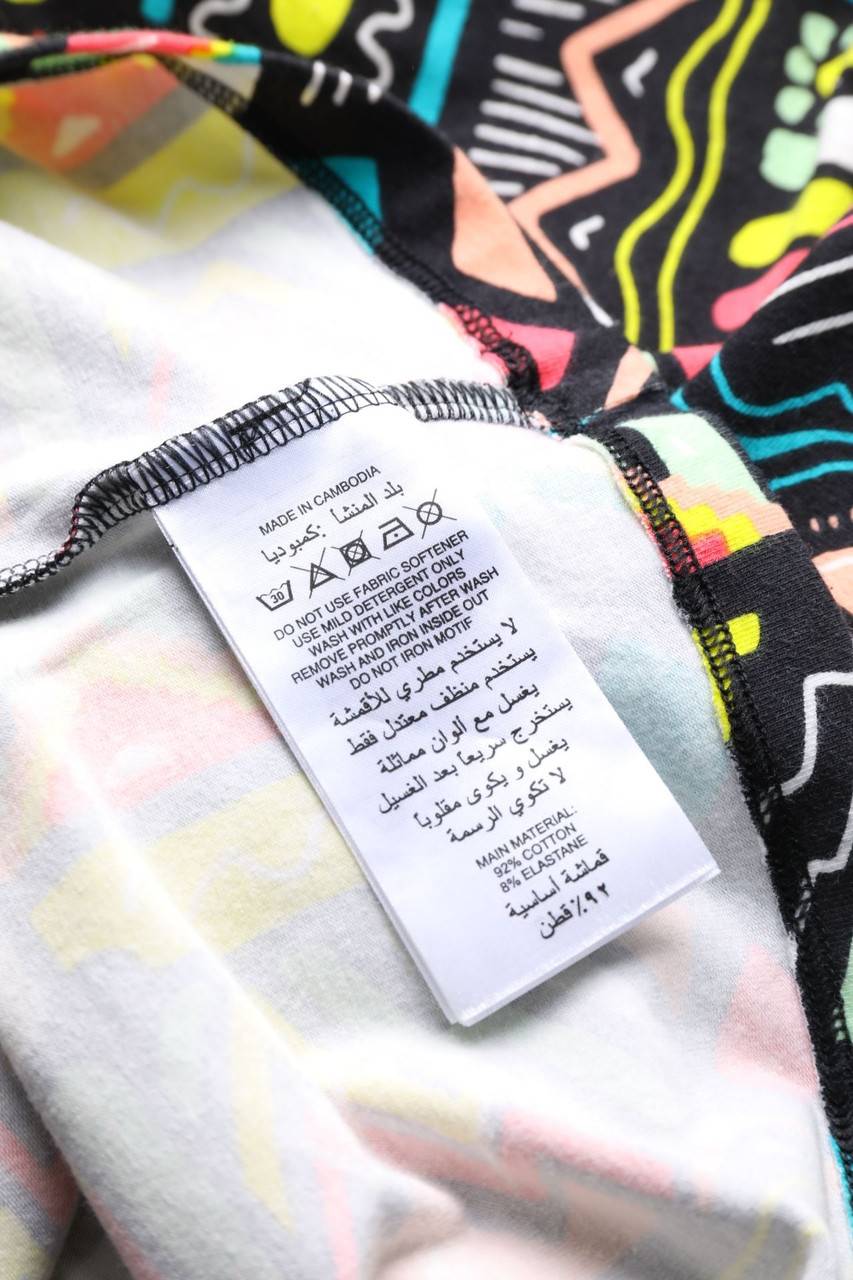 MADE IN CAMBODIA
بلد المنشأ :كمبوديا
30
DO NOT USE FABRIC SOFTENER
USE MILD DETERGENT ONLY
WASH WITH LIKE COLORS
REMOVE PROMPTLY AFTER WASH
WASH AND IRON INSIDE OUT
DO NOT IRON MOTIF
لا يستخدم مطري للأقمشة
يستخدم منظف معتدل فقط
يغسل مع ألوان مماثلة
يستخرج سريعاً بعد الغسيل
يغسل و يكوى مقلوباً
لا تكوي الرسمة
MAIN MATERIAL:
92% COTTON
8% ELASTANE
قماشة أساسية
٩٢٪ قطن